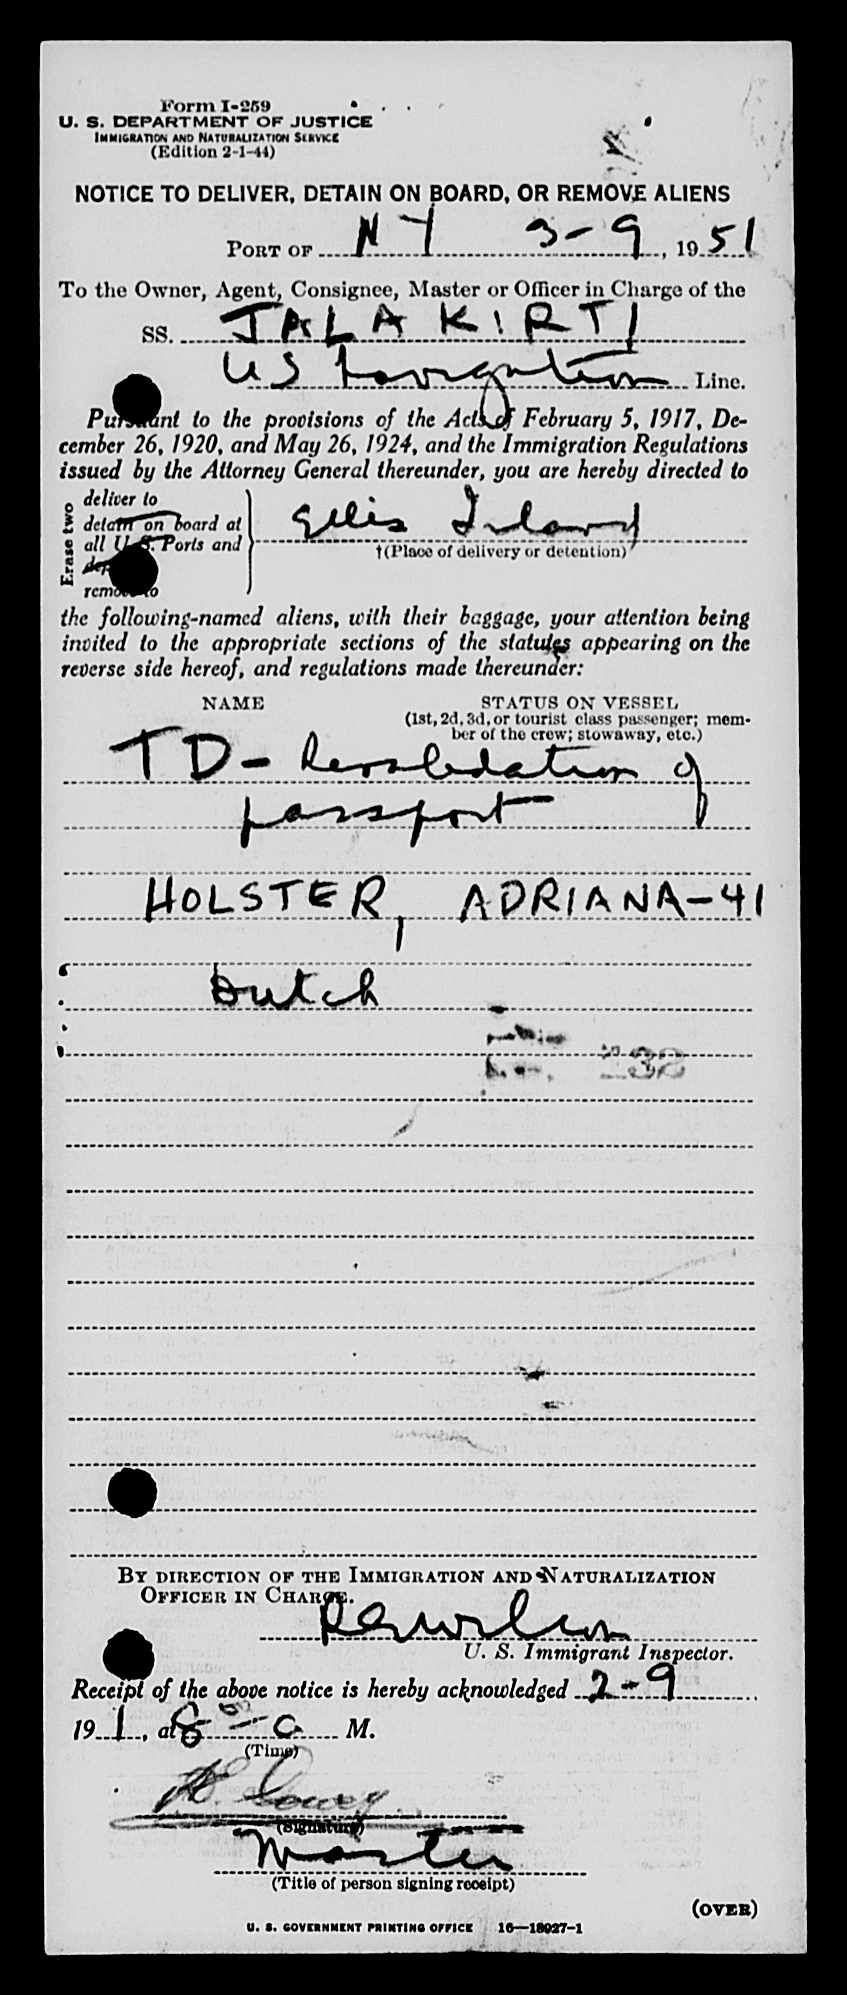 Form I-259
U. S. DEPARTMENT OF JUSTICE
IMMIGRATION AND NATURALIZATION SERVICE
(Edition 2-1-44)
NOTICE TO DELIVER, DETAIN ON BOARD, OR REMOVE ALIENS
PORT OF NY 3-9, 1951
To the Owner, Agent, Consignee, Master or Officer in Charge of the
SS. JALAKIRTI
US Navigation Line.
Pursuant to the provisions of the Acts of February 5, 1917, De-
cember 26, 1920, and May 26, 1924, and the Immigration Regulations
issued by the Attorney General thereunder, you are hereby directed to
Erase two
deliver to
detain on board at
all U.S. Ports and
remove to
Ellis Island
†(Place of delivery or detention)
the following-named aliens, with their baggage, your attention being
invited to the appropriate sections of the statutes appearing on the
reverse side hereof, and regulations made thereunder:
NAME STATUS ON VESSEL
(1st, 2d, 3d, or tourist class passenger; mem-
ber of the crew; stowaway, etc.)
TD - of
passport
HOLSTER, ADRIANA-41
Dutch
BY DIRECTION OF THE IMMIGRATION AND NATURALIZATION
OFFICER IN CHARGE.
U. S. Immigrant Inspector.
Receipt of the above notice is hereby acknowledged 2-9
191, at 8 a M.
(Time)
(Signature)
Master
(Title of person signing receipt)
(OVER)
U. S. GOVERNMENT PRINTING OFFICE 16—18927-1